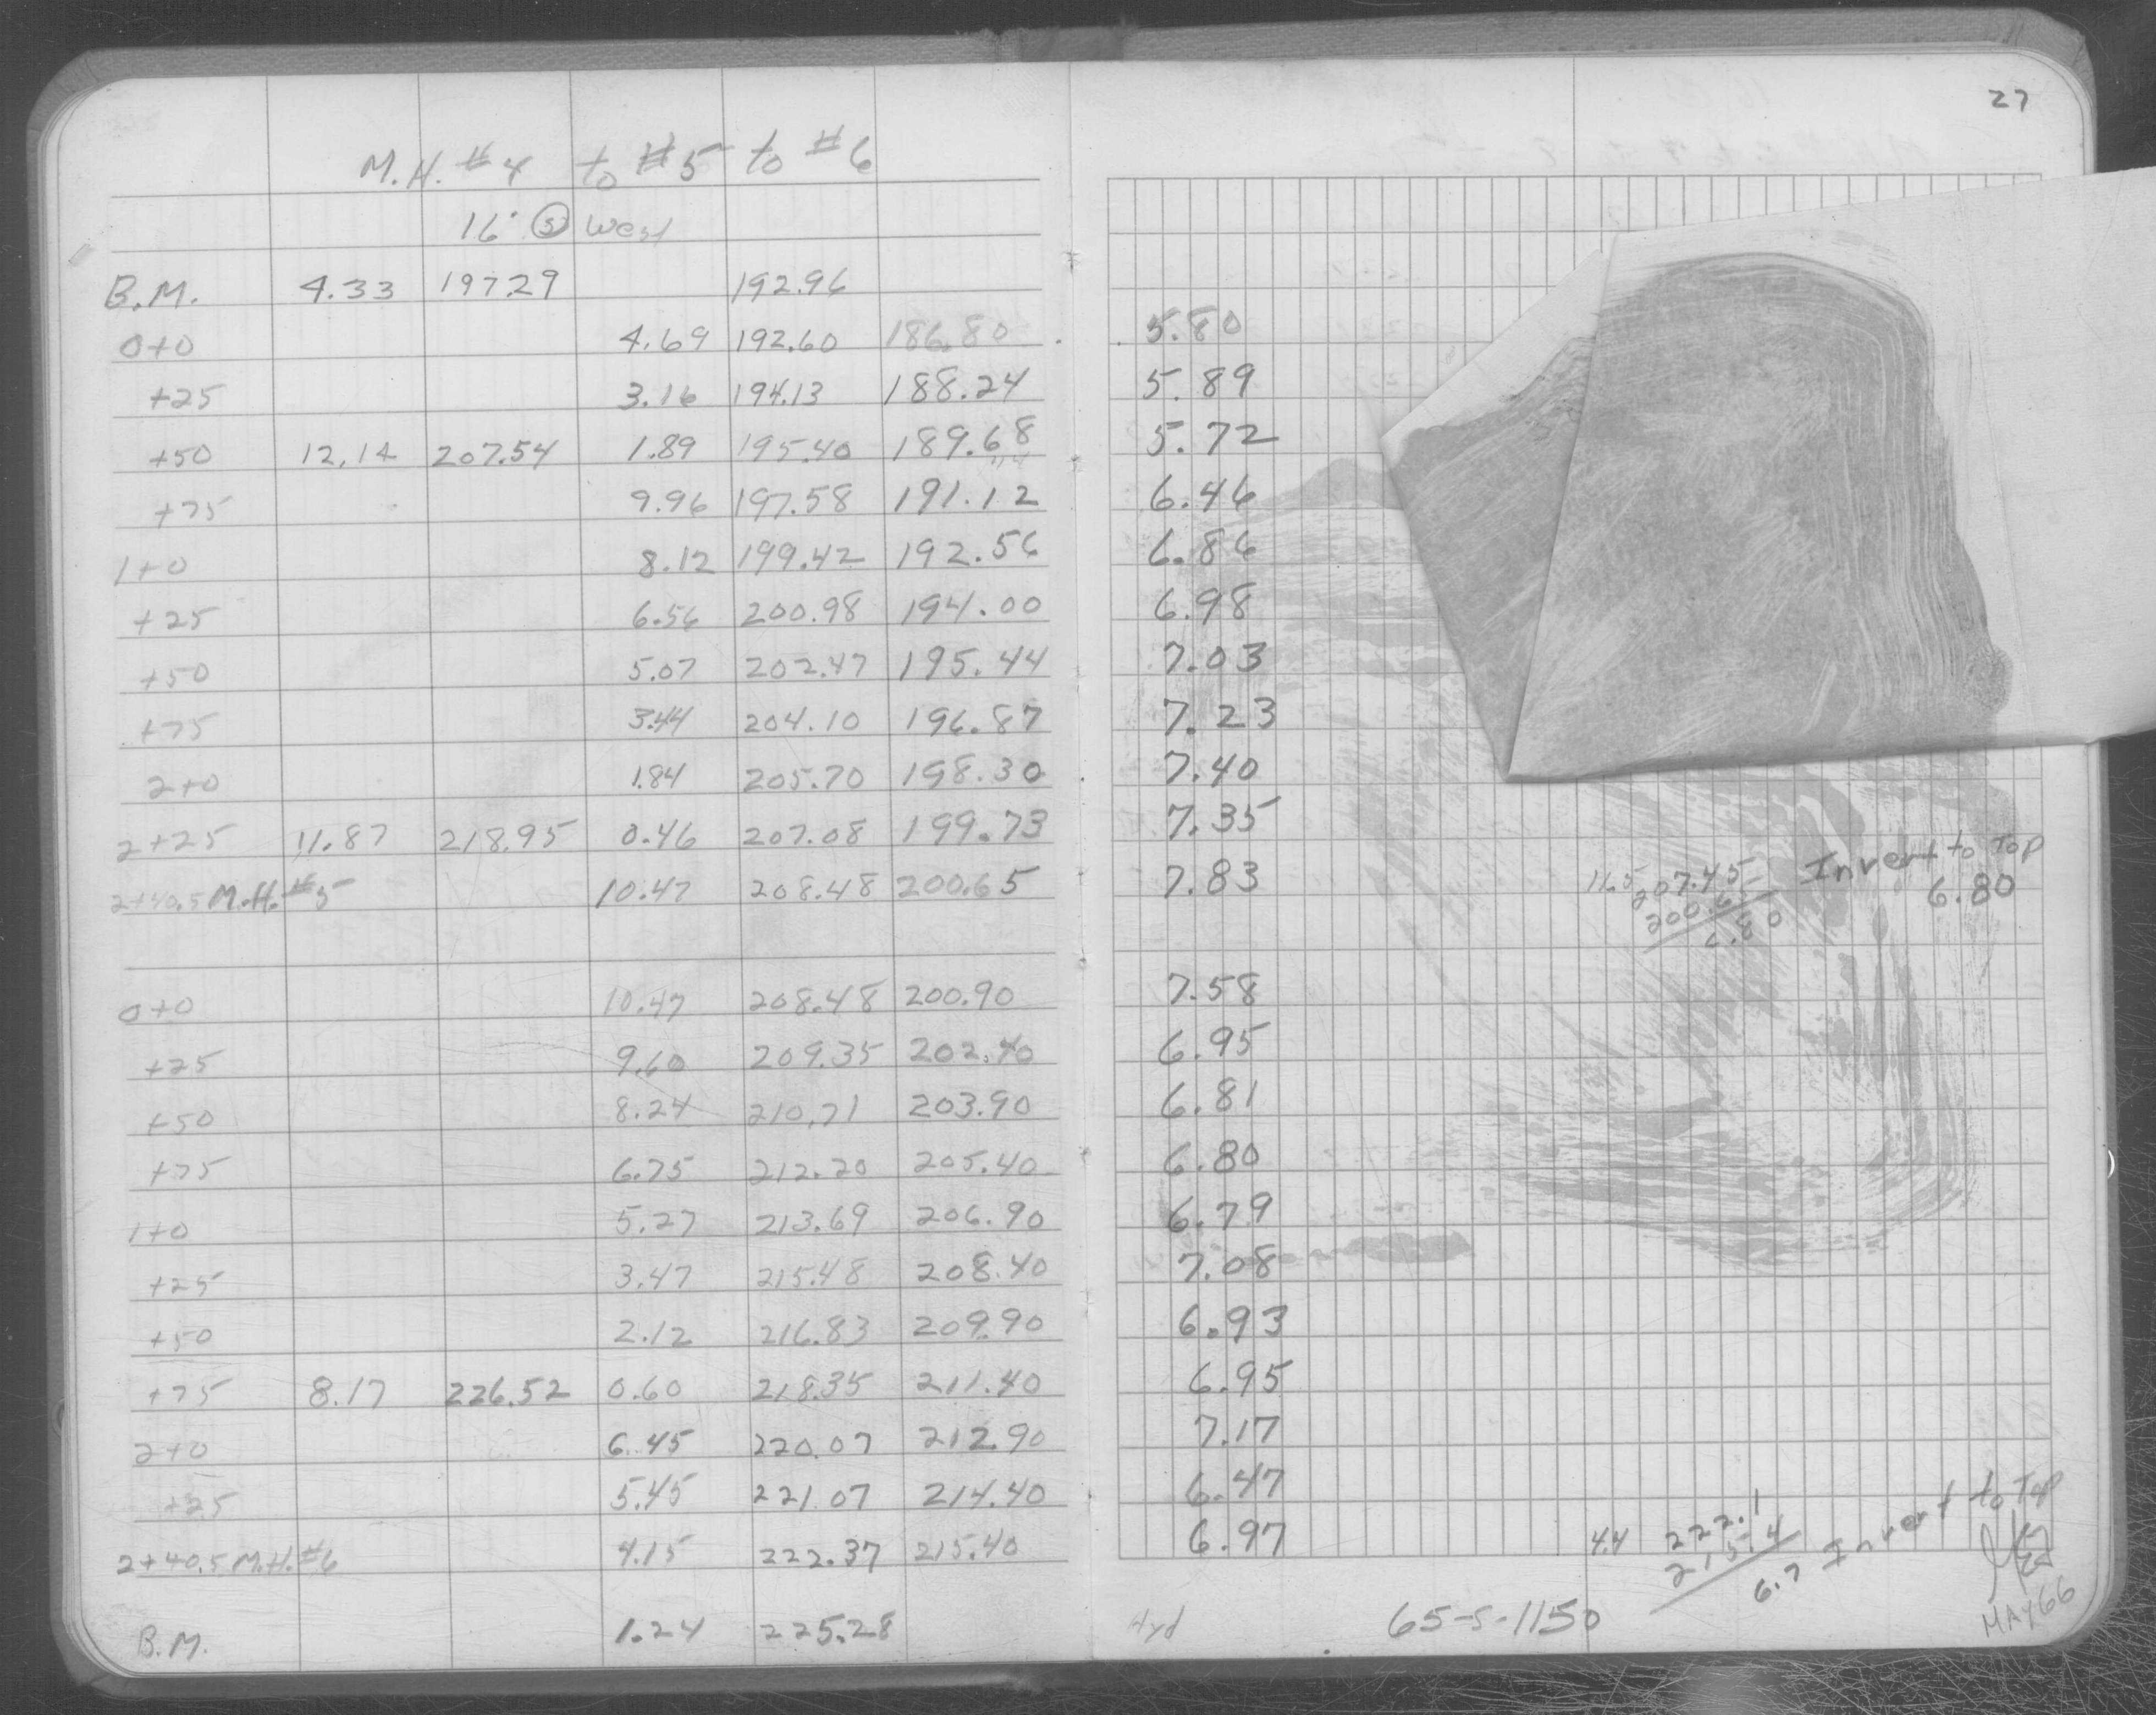 27
M.H. #4 to #5 to #6
16' (S) West
B.M. 4.33 197.29 192.96
0+0 4.69 192.60 186.80 5.80
+25 3.16 194.13 188.24 5.89
+50 12.14 207.54 1.89 195.40 189.68 5.72
+75 9.96 197.58 191.12 6.46
1+0 8.12 199.42 192.56 6.86
+25 6.56 200.98 194.00 6.98
+50 5.07 202.47 195.44 7.03
+75 3.44 204.10 196.87 7.23
2+0 1.84 205.70 198.30 7.40
2+25 11.87 218.95 0.46 207.08 199.73 7.35
2+40.5 M.H. #5 10.47 208.48 200.65 7.83
11.5 207.45 Invert to Top
200.65 6.80
6.80
0+0 10.47 208.48 200.90 7.58
+25 9.60 209.35 202.40 6.95
+50 8.24 210.71 203.90 6.81
+75 6.75 212.20 205.40 6.80
1+0 5.27 213.69 206.90 6.79
+25 3.47 215.48 208.40 7.08
+50 2.12 216.83 209.90 6.93
+75 8.17 226.52 0.60 218.35 211.40 6.95
2+0 6.45 220.07 212.90 7.17
+25 5.45 221.07 214.40 6.47
2+40.5 M.H. #6 4.15 222.37 215.40 6.97
4.4 222.1 Invert to Top
215.4
6.7
B.M. 1.24 225.28
Hyd 65-S-1150 MAY 66